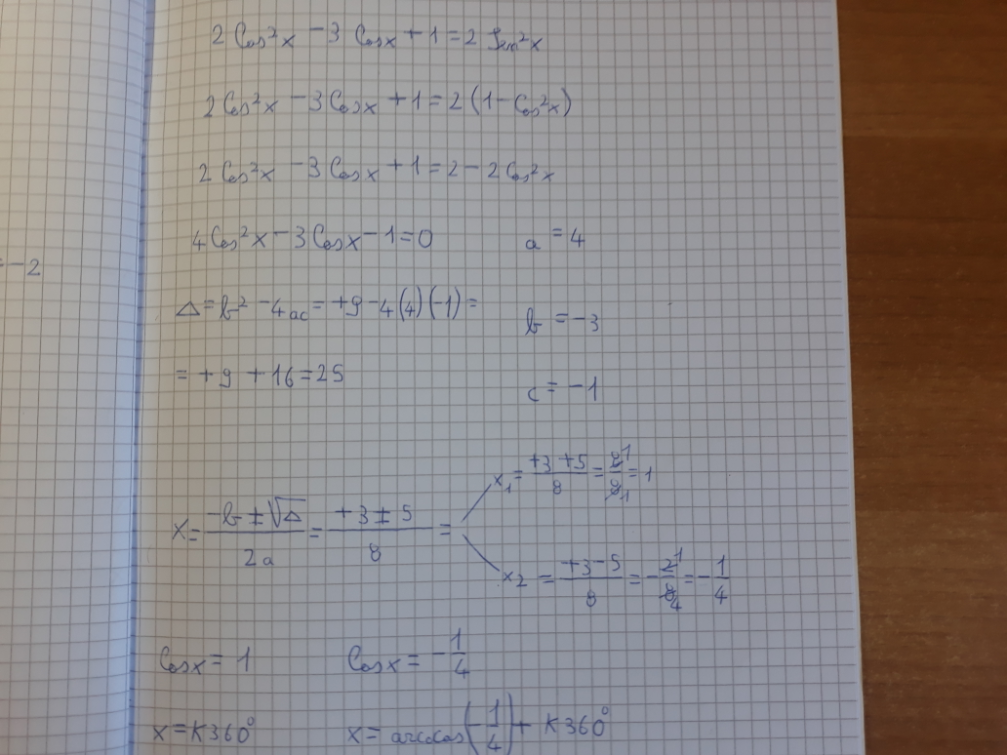 2 Cos²x - 3 Cosx + 1 = 2 Sen²x
2 Cos²x - 3 Cosx + 1 = 2 (1 - Cos²x)
2 Cos²x - 3 Cosx + 1 = 2 - 2 Cos²x
4 Cos²x - 3 Cosx - 1 = 0 a = 4
= -2
Δ = b² - 4ac = +9 - 4(4)(-1) = b = -3
= +9 + 16 = 25 c = -1
x₁ = (+3 + 5)/8 = 8/8 = 1
x = (-b ± √Δ)/2a = (+3 ± 5)/8 =
x₂ = (+3 - 5)/8 = -2/8 = -1/4
Cosx = 1 Cosx = -1/4
x = K360° x = arccos(-1/4) + K360°